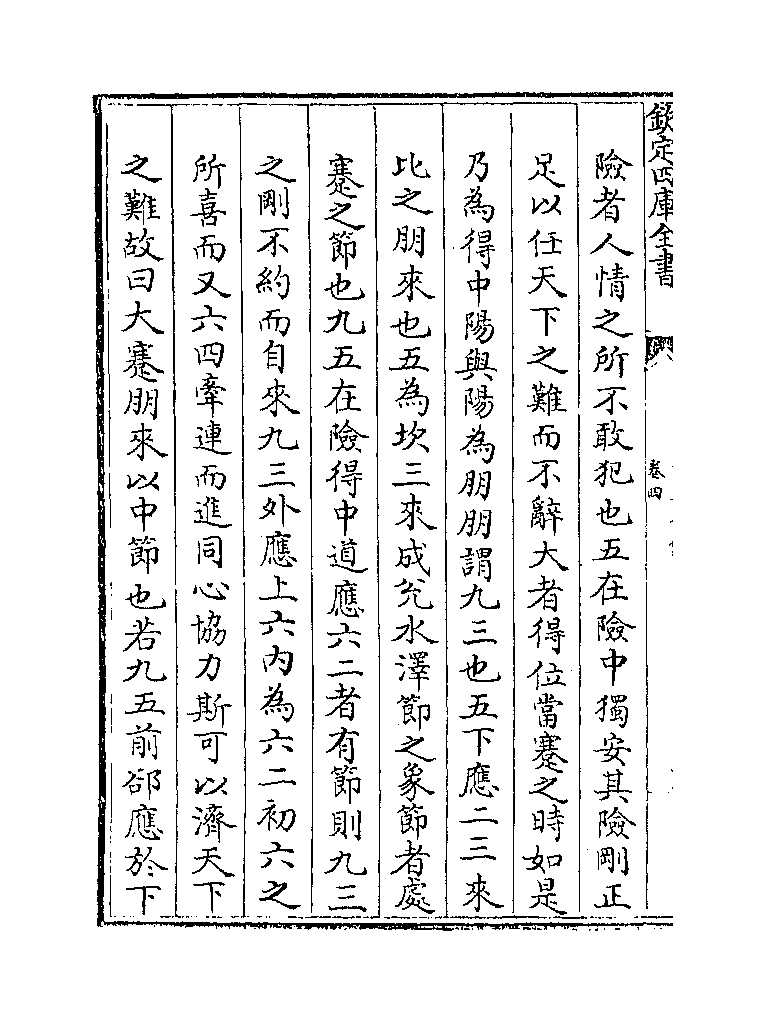 欽定四庫全書
卷四
險者人情之所不敢犯也五在險中獨安其險剛正
足以任天下之難而不辭大者得位當蹇之時如是
乃為得中陽與陽為朋朋謂九三也五下應二三來
比之朋來也五為坎三來成兊水澤節之象節者處
蹇之節也九五在險得中道應六二者有節則九三
之剛不約而自來九三外應上六内為六二初六之
所喜而又六四牽連而進同心協力斯可以濟天下
之難故曰大蹇朋來以中節也若九五前郤應於下